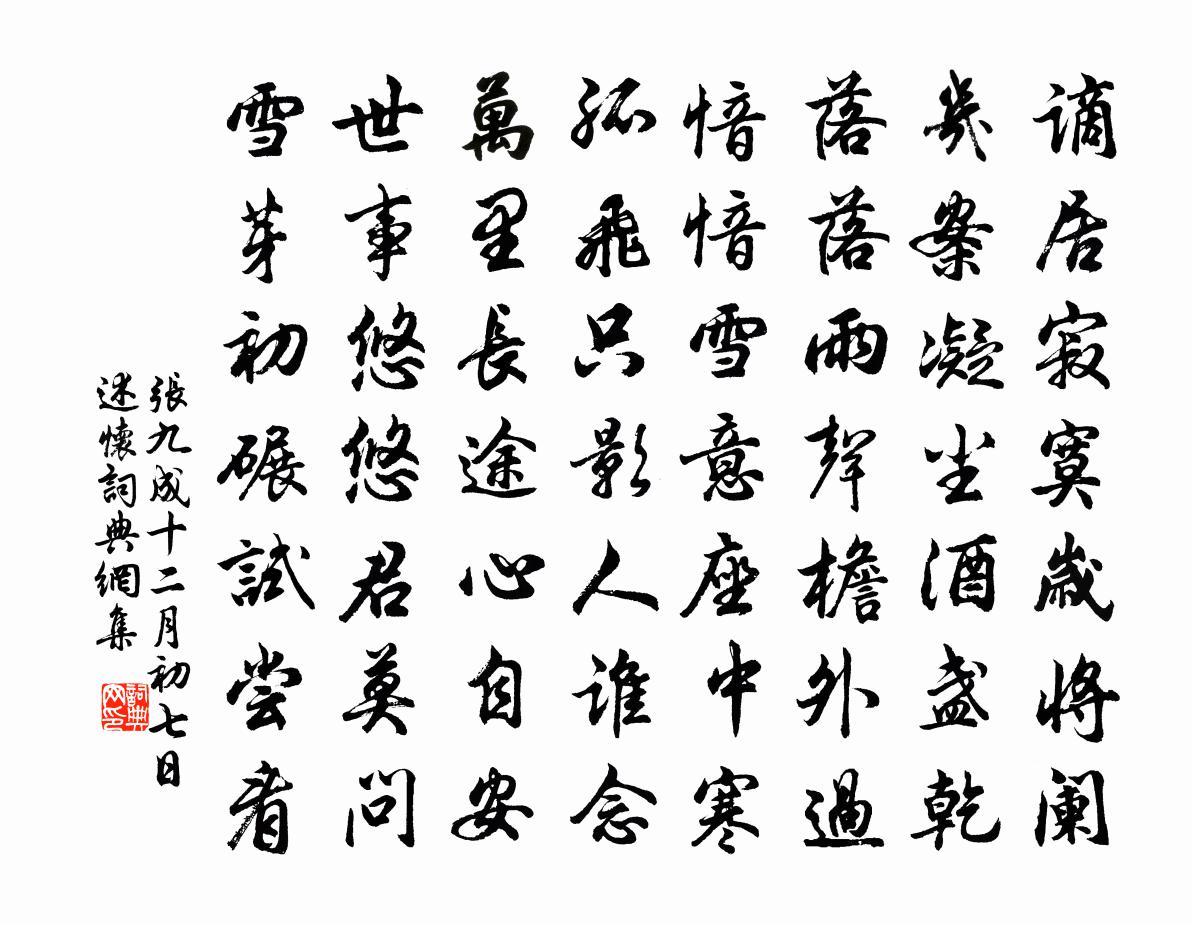 謫居寂寞歲將闌
幾案凝尘酒盞乾
落落雨聲檐外過
愔愔雪意座中寒
孤飛只影人誰念
萬里長途心自安
世事悠悠君莫問
雪芽初碾試尝看
張九成十二月初七日
述懷詞典網集
詞典网印